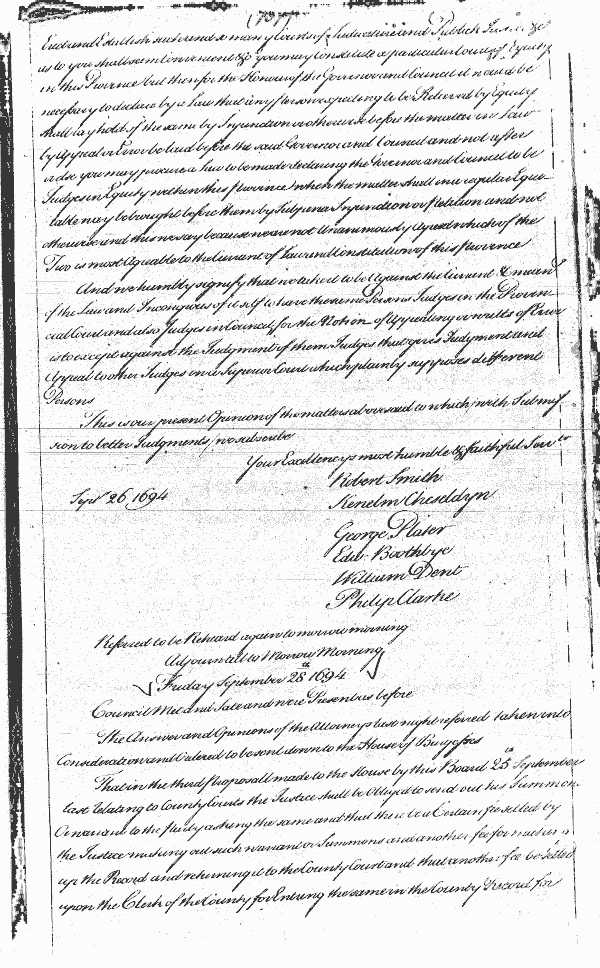 (707)
and Establish such and so many Courts of Judicature and Publick Justice &c
as to you shall seem Convenient &c you may Constitute a particular Court of Equity
in this Province but then for the Honour of the Governor and Council it would be
necessary to declare by a Law that any person expecting to be Relieved by Equity
shall lay hold of the same by Injunction or otherwise before the matter in Law
by Appeal or Error be laid before the said Governor and Council and not after
or else you may procure a Law to be made declaring the Governor and Council to be
Judges in Equity within this province when the matter shall in a regular Equi-
table may be brought before them by Subpena Injunction or petition and not
otherwise and this we say because we are not Unanimously Agreed which of the
Two is most Agreable to the Current of Law and Constitution of this province
And we humbly signify that we take it to be Against the Current &
of the Law and Incongrous of itself to have the same Persons Judges in the Provin-
cial Court and also Judges in Council for the Notion of Appealing or writts of Error
is to except against the Judgment of them Judges that give Judgment and
Appeal to other Judges on a Superior Court which plainly supposes different
Persons
This is our present Opinion of the matters abovesaid to which, with Submis-
sion to better Judgments, we subscribe
Your Excellencys most humble & faithful Servts
Robert Smith
Sepr 26 1694 Kenelm Cheseldyn
George Plater
Edw. Boothbye
William Dent
Philip Clarke
Referred to be Reheard again to morrow morning
Adjourned to Morrow Morning
Friday September 28th 1694
Council Met and Sate and were Present as before
The Answer and Opinions of the Attorneys last night referred taken into
Consideration and Ordered to be sent down to the House of Burgesses
That in the third proposall made to the House by this Board 25th September
last Relating to County Courts the Justice shall be Obliged to send out his Summons
Or warrant to the party asking the same and that there be a Certain fee setled by
the Justice making out such warrant or Summons and another fee for
up the Record and returning it to the County Court and that another fee be Setled
upon the Clerk of the County for Entring the same in the County Record for